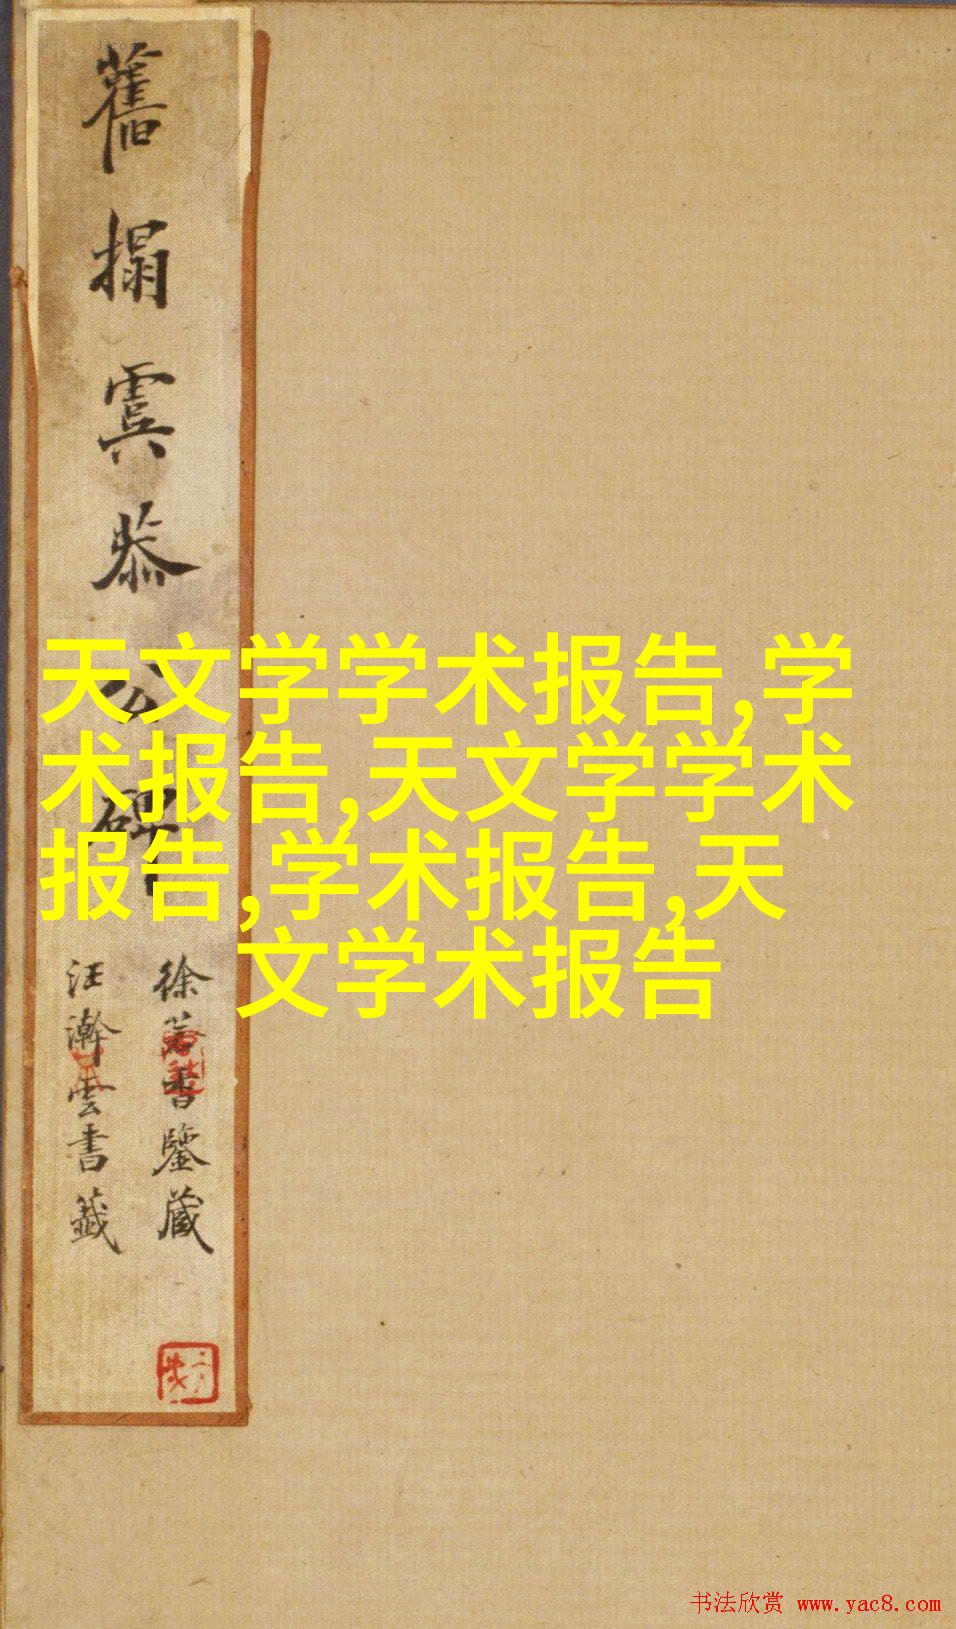 舊搨虞恭公碑
徐若書鑒藏
汪澣雲書籤
天文学学术报告,学
术报告,天文学学术
报告,学术报告,天
文学术报告
书法欣赏 www.yac8.com